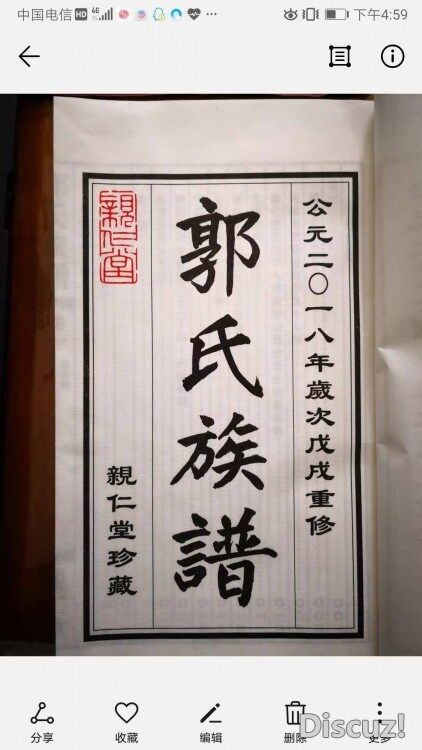 中国电信 HD 4G 下午4:59
公元二〇一八年歲次戊戌重修
郭氏族譜
親仁堂
親仁堂珍藏
分享
收藏
编辑
删除
更多
Discuz!